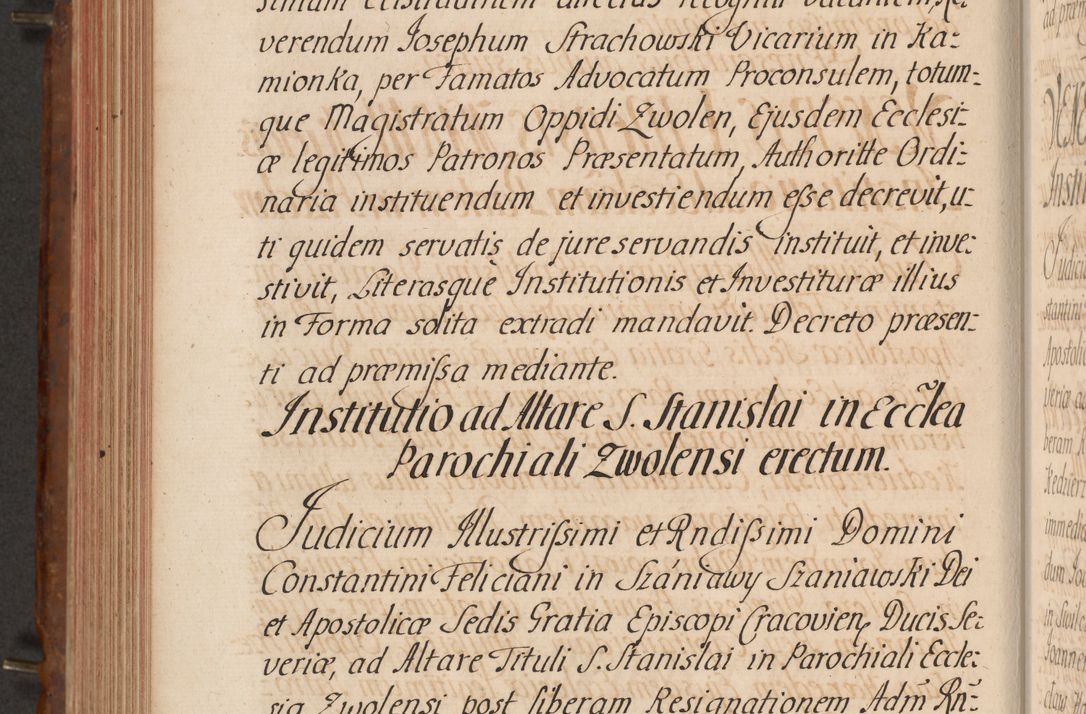 verendum Josephum Strachowski Vicarium in Ka:
mionka, per Famatos Advocatum Proconsulem, totum:
que Magistratum Oppidi Zwolen, Ejusdem Ecclesi:
æ legitimos Patronos Præsentatum, Authoritte Ordi:
naria instituendum et investiendum eſse decrevit, u:
ti quidem servatis de jure servandis instituit, et inve:
stivit, Literasquè Institutionis et Investituræ illius
in Forma solita extradi mandavit. Decreto præsen:
ti ad præmiſsa mediante.
Institutio ad Altare S. Stanislai in Eccl̃ea
Parochiali Zwolensi erectum.
Judicium Illustriſsimi et Rndiſsimi Domini
Constantini Feliciani in Szániawy Szaniawski Dei
et Apostolicæ Sedis Gratia Episcopi Cracovien, Ducis Se:
veriæ, ad Altare Tituli S. Stanislai in Parochiali Eccle:
sia Zwolensi post liberam Resignationem Adm̃ Rñ: